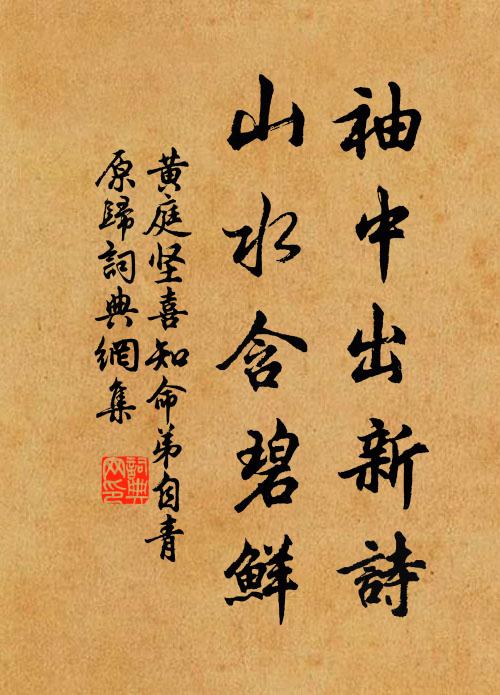 袖中出新詩
山水含碧鮮
黄庭坚喜知命弟自青
原歸詞典網集
詞典
网印